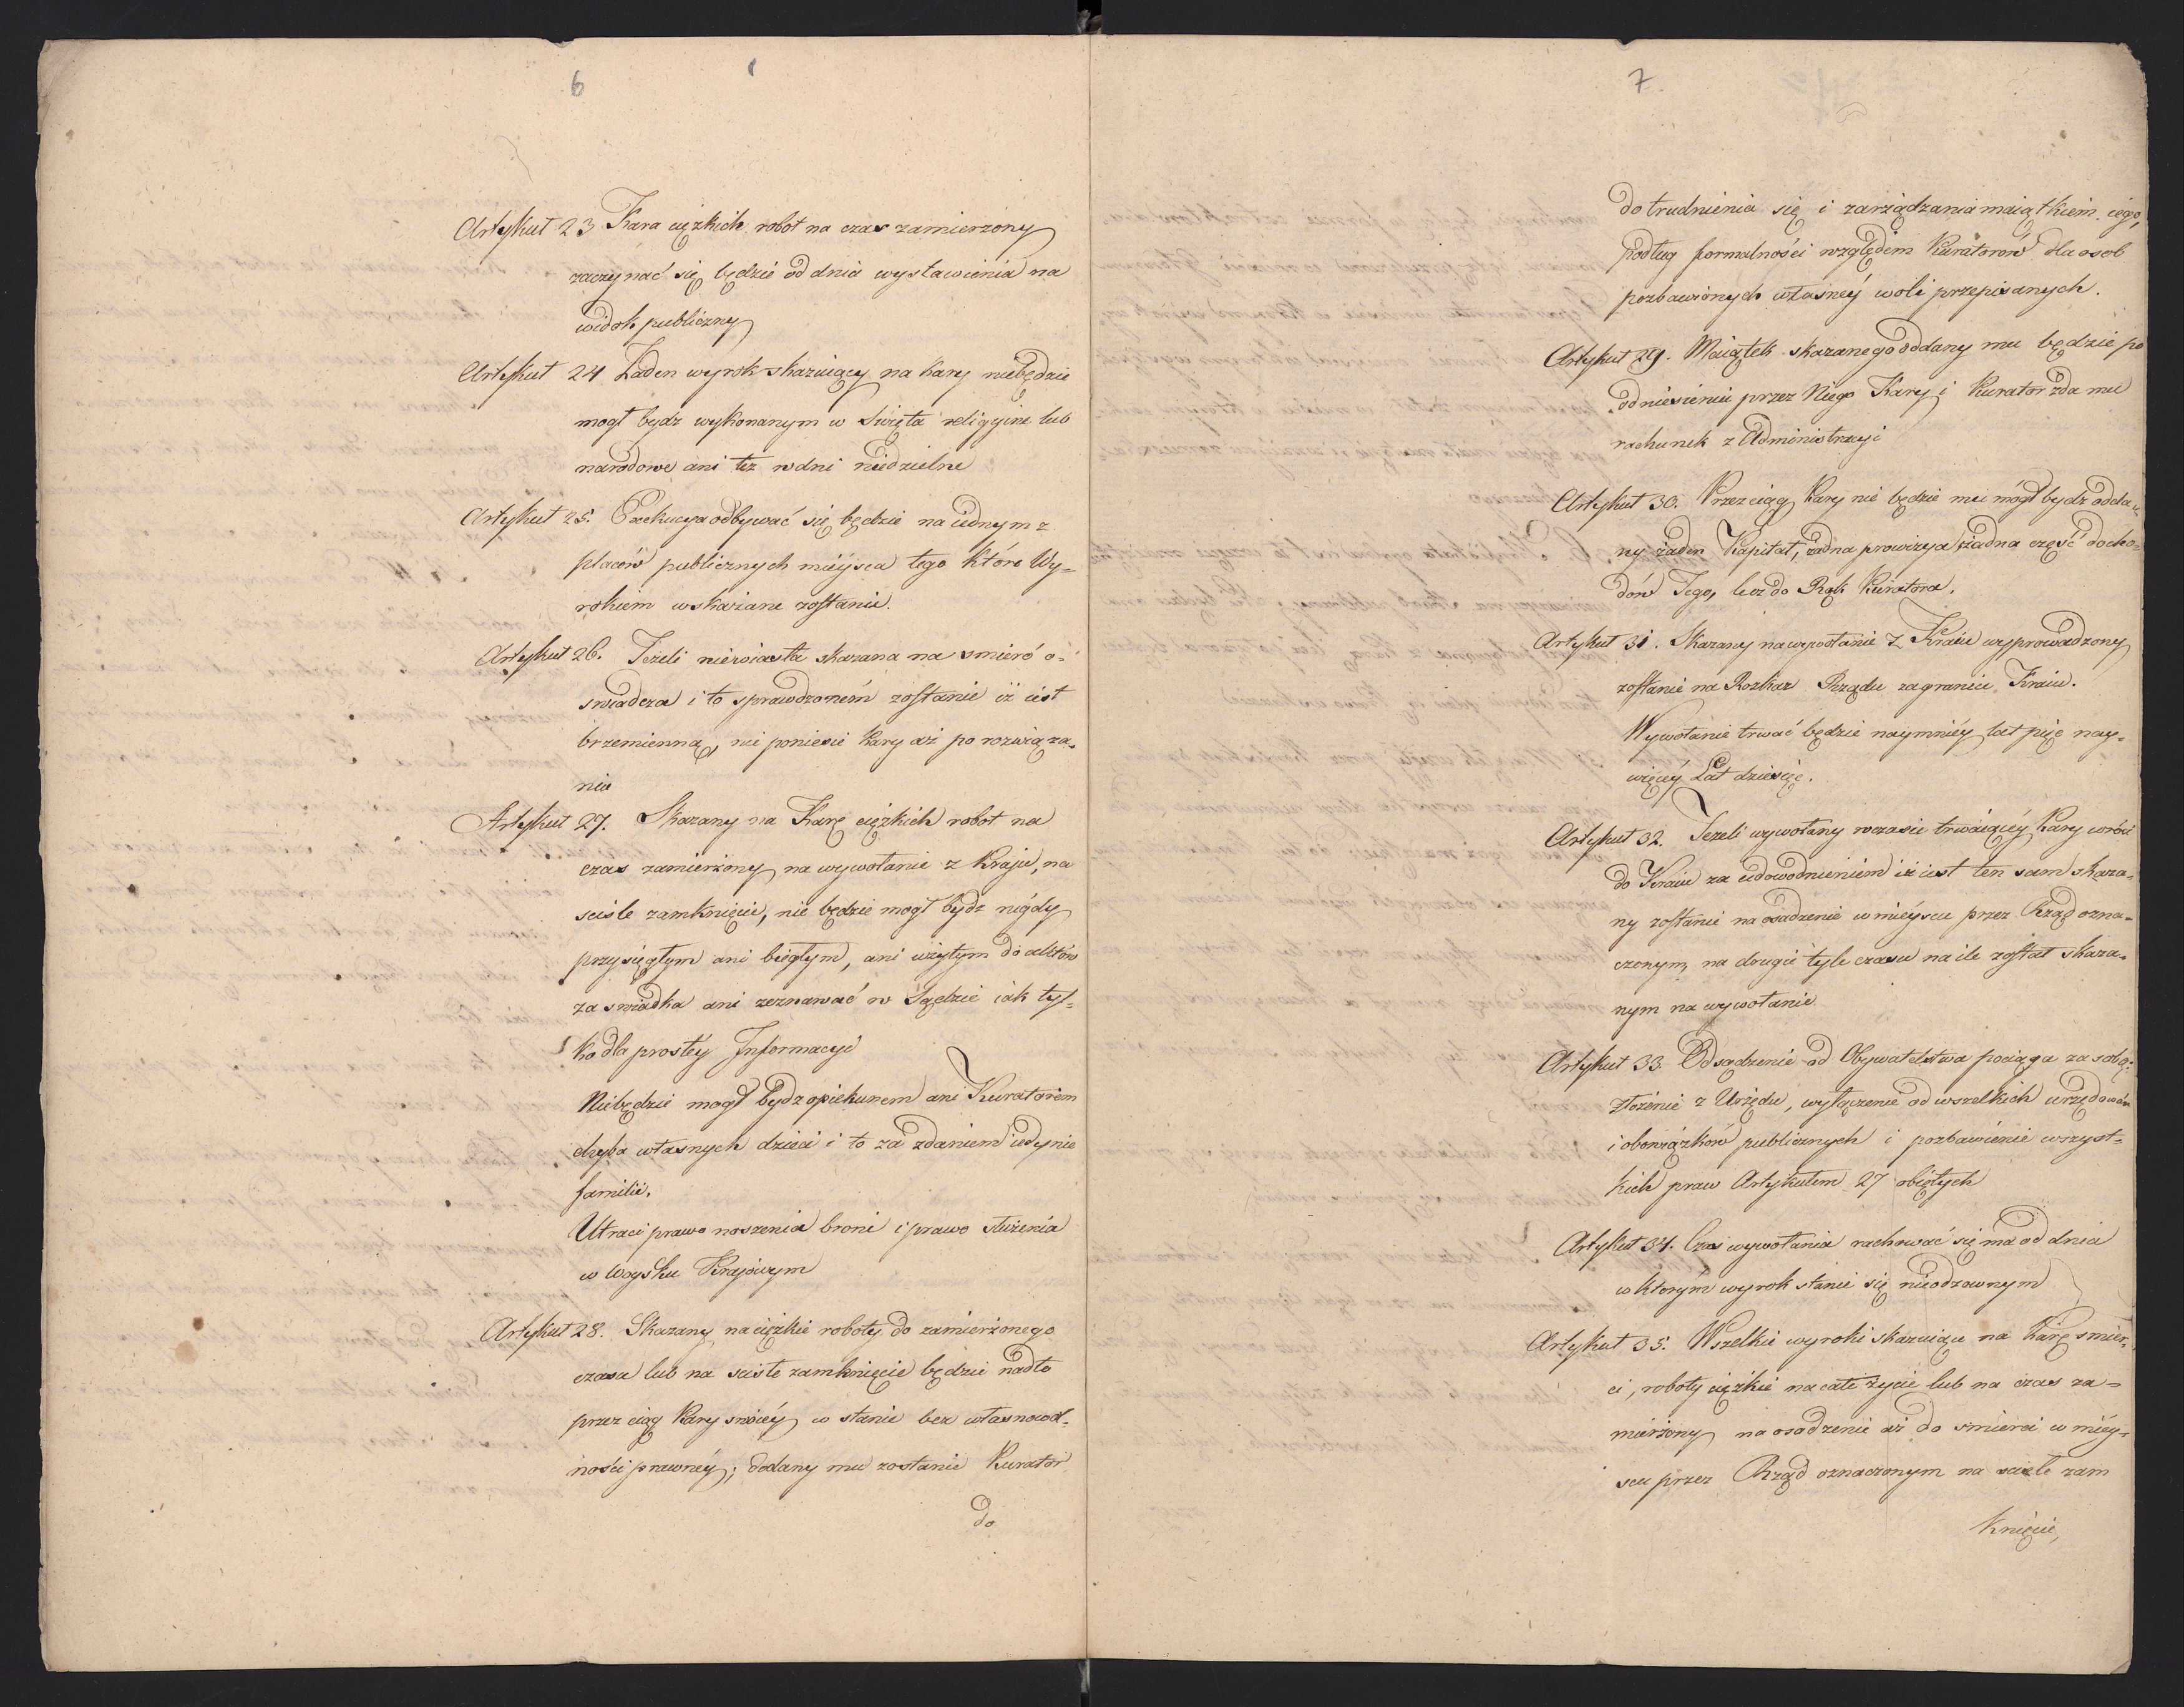 6
Artykuł 23 Kara ciężkich robot na czas zamierzony
zaczynać się będzie od dnia wystawienia na
widok publiczny
Artykuł 24 Żaden wyrok skazuiący na kary niebędzie
mogł bydz wykonanym w Święta religijne lub
narodowe ani też w dni niedzielne
Artykuł 25. Exekucya odbywać się będzie na iednym z
placów publicznych mieysca tego które Wy=
rokiem wskazane zostanie.
Artykuł 26. Jeżeli niewiasta skazana na smierć o=
swiadcza i to sprawdzoném zostanie iż iest
brzemienną, nie poniesie kary aż po rozwiąza=
niu
Artykuł 27. Skazany na Karę ciężkich robot na
czas zamierzony, na wywołanie z Kraju, na
scisłe zamknięcie, nie będzie mogł bydz nigdy
przysięgłym ani biegłym, ani użytym do aktów
za swiadka ani zeznawać w Sądzie iak tyl=
ko dla prostéy Informacyi
Niebędzie mogł bydz opiekunem ani Kuratorem
chyba własnych dzieci i to za zdaniem iedynie
familii.
Utraci prawo noszenia broni i prawo służenia
w woysku Krajowym
Artykuł 28. Skazany na ciężkie roboty do zamierzonego
czasu lub na scisłe zamknięcie będzie nadto
przez ciąg kary swoiéy w stanie bez własnowol=
ności prawnéy; dodany mu zostanie Kurator
do
7
do trudnienia się i zarządzania maiątkiem iego,
podług formalności względem Kuratorów dla osob
pozbawionych własnéy woli przepisanych.
Artykuł 29. Maiątek skazanego oddany mu będzie po
odniesieniu przez Niego Kary i Kurator zda mu
rachunek z Administracyi
Artykuł 30. Przez ciąg kary nie będzie mu mógł bydz odda=
ny żaden Kapitał, żadna prowizya żadna część docho=
dów Jego, lecz do Rąk Kuratora.
Artykuł 31. Skazany na wywołanie z Kraiu wyprowadzony
zostanie na Rozkaz Rządu za granice Kraiu.
Wywołanie trwać będzie naymniéy lat pięć nay=
więcéy Lat dziesięć.
Artykuł 32. Jeżeli wywołany w czasie trwaiącéy Kary wróci
do Kraiu za udowodnieniem iż iest ten sam skaza=
ny zostanie na osadzenie w mieyscu przez Rząd ozna=
czonym, na drugie tyle czasu na ile został skaza=
nym na wywołanie
Artykuł 33. Odsądzenie od Obywatelstwa pociąga za sobą:
złożenie z Urzędu, wyłączenie od wszelkich urzędowań
i obowiązków publicznych i pozbawienie wszyst=
kich praw Artykułem 27 obiętych
Artykuł 34. Czas wywołania rachować się ma od dnia
w którym wyrok stanie się nieodzownym
Artykuł 35. Wszelkie wyroki skazuiące na karę smier=
ci, roboty ciężkie na całe życie lub na czas za=
mierzony na osadzenie aż do smierci w miéy=
scu przez Rząd oznaczonym na scisłe zam
knięcie,